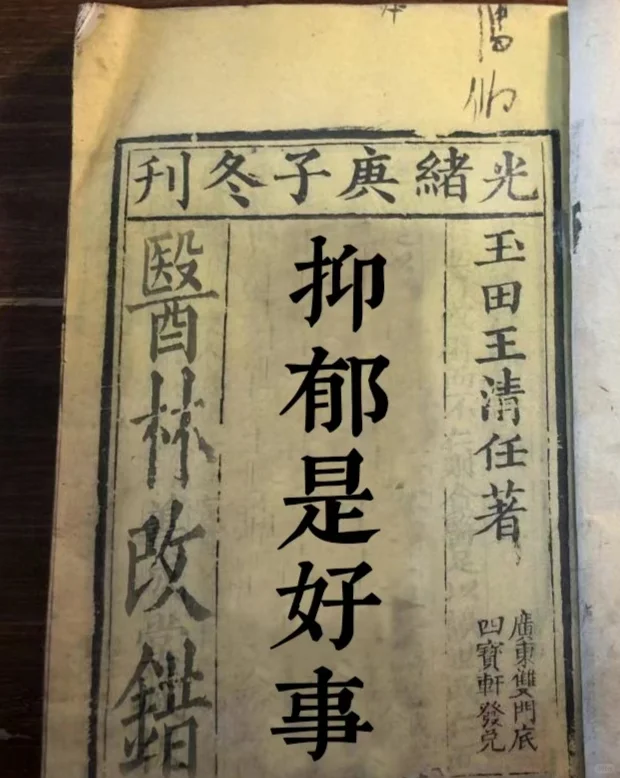 光緒庚子冬刊
玉田王清任著
廣東雙門底
四寶軒發兌
抑郁是好事
醫林改錯